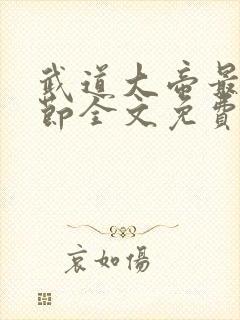 武道大帝最
節全文免費
哀如傷